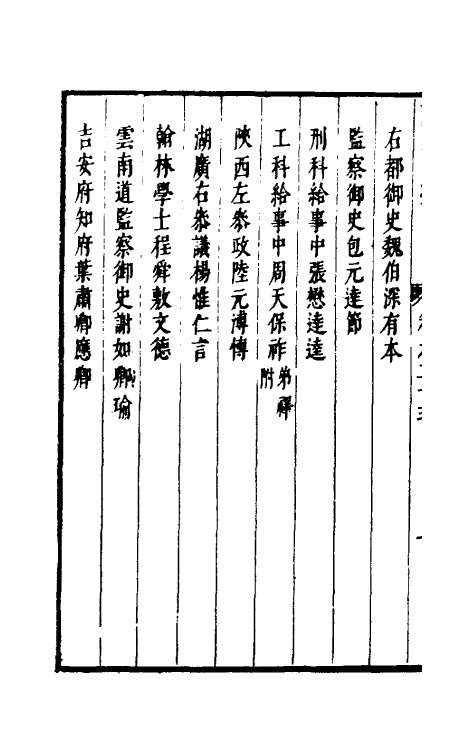 右都御史魏伯深有本
監察御史包元達節
刑科給事中張懋達逵
工科給事中周天保祚弟禪附
陝西左叅政陸元溥傳
湖廣右叅議楊惟仁言
翰林學士程舜敷文德
雲南道監察御史謝如卿瑜
吉安府知府葉肅卿應卿